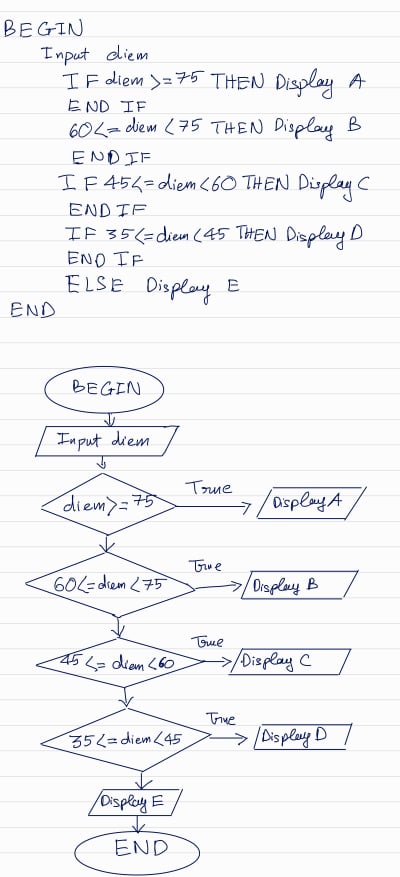 BEGIN
Input diem
IF diem >= 75 THEN Display A
END IF
60 <= diem < 75 THEN Display B
END IF
IF 45 <= diem < 60 THEN Display C
END IF
IF 35 <= diem < 45 THEN Display D
END IF
ELSE Display E
END
BEGIN
Input diem
diem >= 75
True
Display A
60 <= diem < 75
True
Display B
45 <= diem < 60
True
Display C
35 <= diem < 45
True
Display D
Display E
END